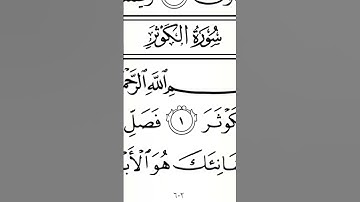 سُورَةُ الكَوْثَرِ
ـمِ ٱللَّهِ ٱلرَّحْمَـ
ـكَوْثَرَ ١ فَصَلِّ
ـانِئَكَ هُوَ ٱلْأَبْـ
٦٠٢